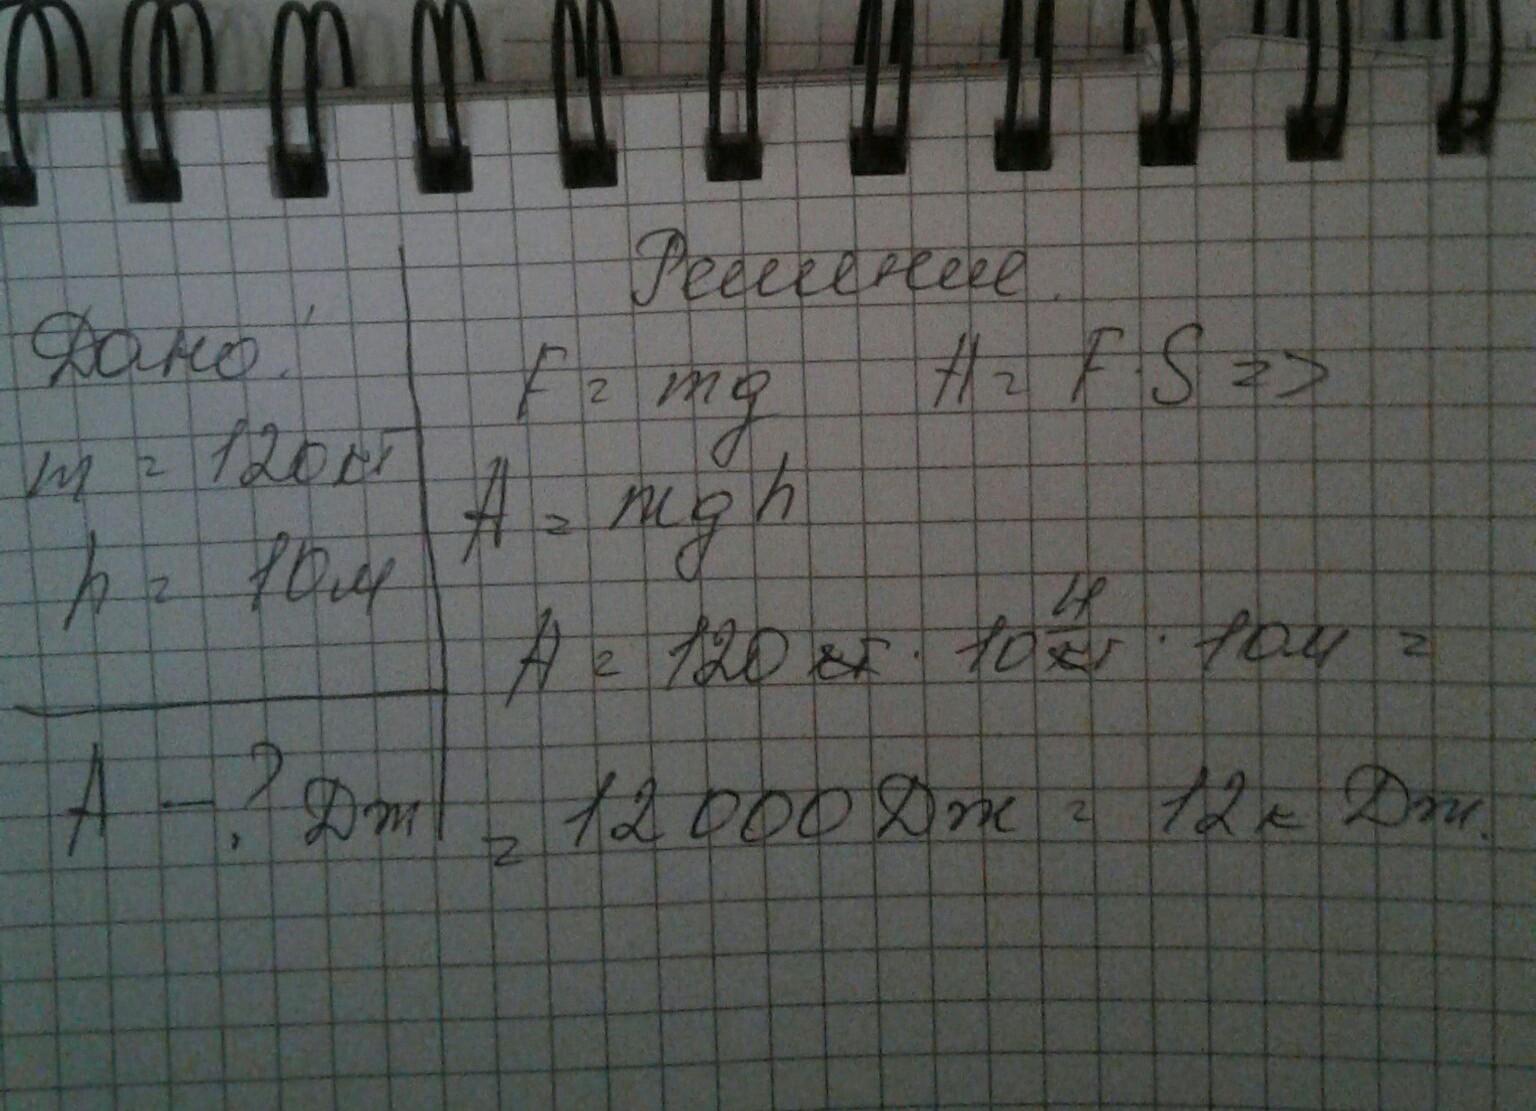 Решение.
Дано:
F = mg A = F·S =>
m = 120кг
A = mgh
h = 10м
A = 120 кг · 10 Н/кг · 10м =
A — ? Дж
= 12000 Дж = 12к Дж.